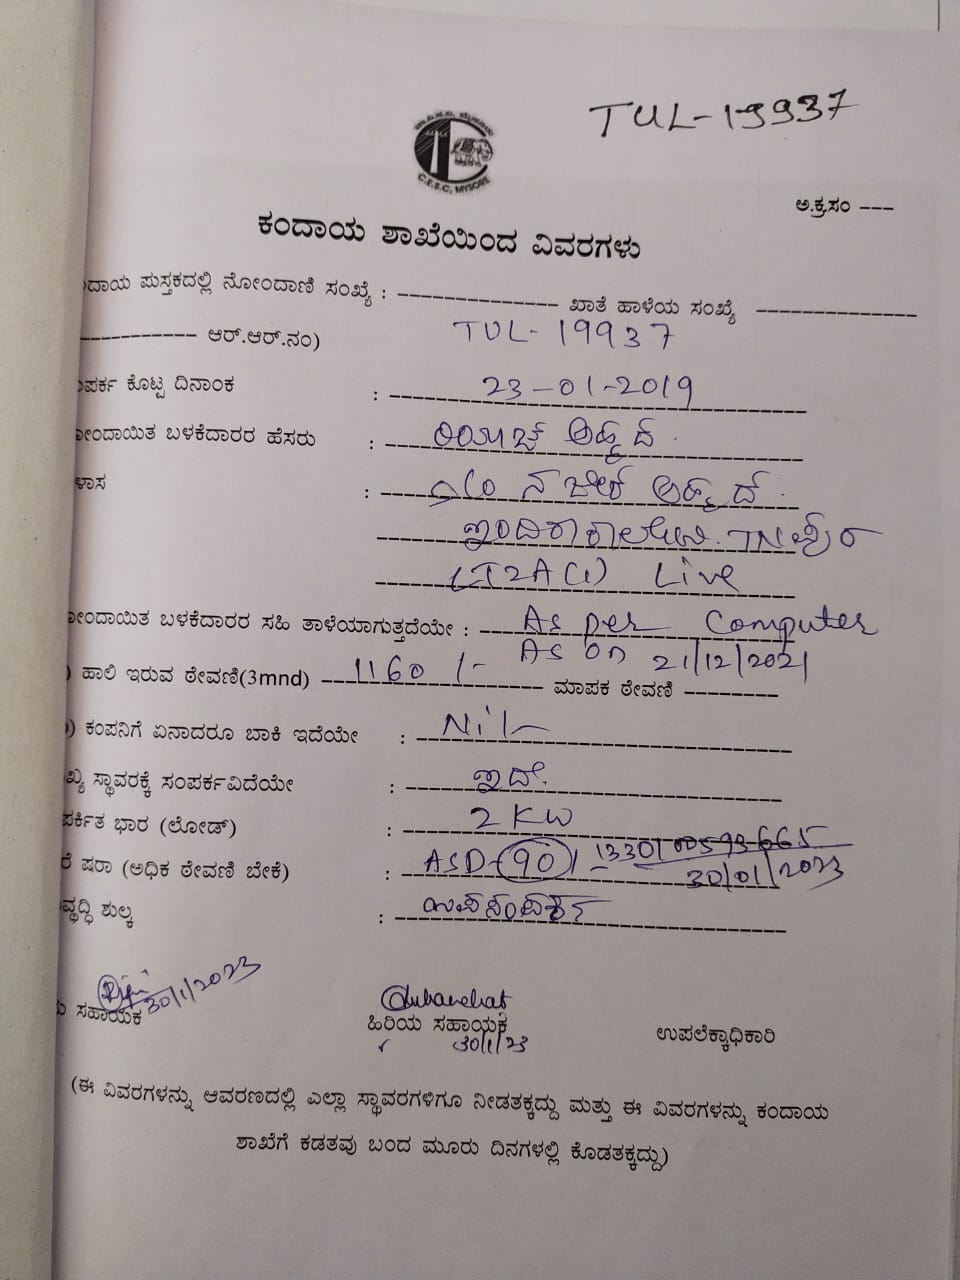 TUL-19937
C.E.S.C, MYSORE
ಅ.ಕ್ರ.ಸಂ ---
ಕಂದಾಯ ಶಾಖೆಯಿಂದ ವಿವರಗಳು
ದಾಯ ಪುಸ್ತಕದಲ್ಲಿ ನೋಂದಾಣಿ ಸಂಖ್ಯೆ : ---------------- ಖಾತೆ ಹಾಳೆಯ ಸಂಖ್ಯೆ ----------------
------------ ಆರ್.ಆರ್.ನಂ) TUL-19937
ಪರ್ಕ ಕೊಟ್ಟ ದಿನಾಂಕ : 23-01-2019
ೋಂದಾಯಿತ ಬಳಕೆದಾರರ ಹೆಸರು : ಅಹ್ಮದ್
ಳಾಸ : ನಜೀರ್ ಅಹ್ಮದ್
ಇಂದಿರಾಕಾಲೋನಿ.
(LT2A(1) Live
ೋಂದಾಯಿತ ಬಳಕೆದಾರರ ಸಹಿ ತಾಳೆಯಾಗುತ್ತದೆಯೇ : As per Computer
As on 21/12/2021
) ಹಾಲಿ ಇರುವ ಠೇವಣಿ(3mnd) 1160/- ಮಾಪಕ ಠೇವಣಿ ---------
) ಕಂಪನಿಗೆ ಏನಾದರೂ ಬಾಕಿ ಇದೆಯೇ : Nil-
ಖ್ಯ ಸ್ಥಾವರಕ್ಕೆ ಸಂಪರ್ಕವಿದೆಯೇ : ಇದೆ.
ಪರ್ಕಿತ ಭಾರ (ಲೋಡ್) : 2 KW
ರೆ ಷರಾ (ಅಧಿಕ ಠೇವಣಿ ಬೇಕೆ) : ASD-90/ 1330100593665
30/01/2023
ವೃದ್ಧಿ ಶುಲ್ಕ :
30/1/2023
ಸಹಾಯಕ
ಹಿರಿಯ ಸಹಾಯಕ ಉಪಲೆಕ್ಕಾಧಿಕಾರಿ
30/1/23
(ಈ ವಿವರಗಳನ್ನು ಆವರಣದಲ್ಲಿ ಎಲ್ಲಾ ಸ್ಥಾವರಗಳಿಗೂ ನೀಡತಕ್ಕದ್ದು ಮತ್ತು ಈ ವಿವರಗಳನ್ನು ಕಂದಾಯ
ಶಾಖೆಗೆ ಕಡತವು ಬಂದ ಮೂರು ದಿನಗಳಲ್ಲಿ ಕೊಡತಕ್ಕದ್ದು)